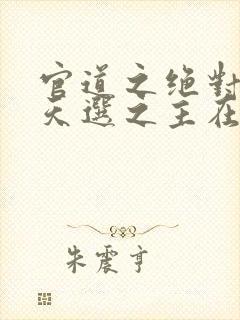 官道之绝對
天選之主在
朱震亨